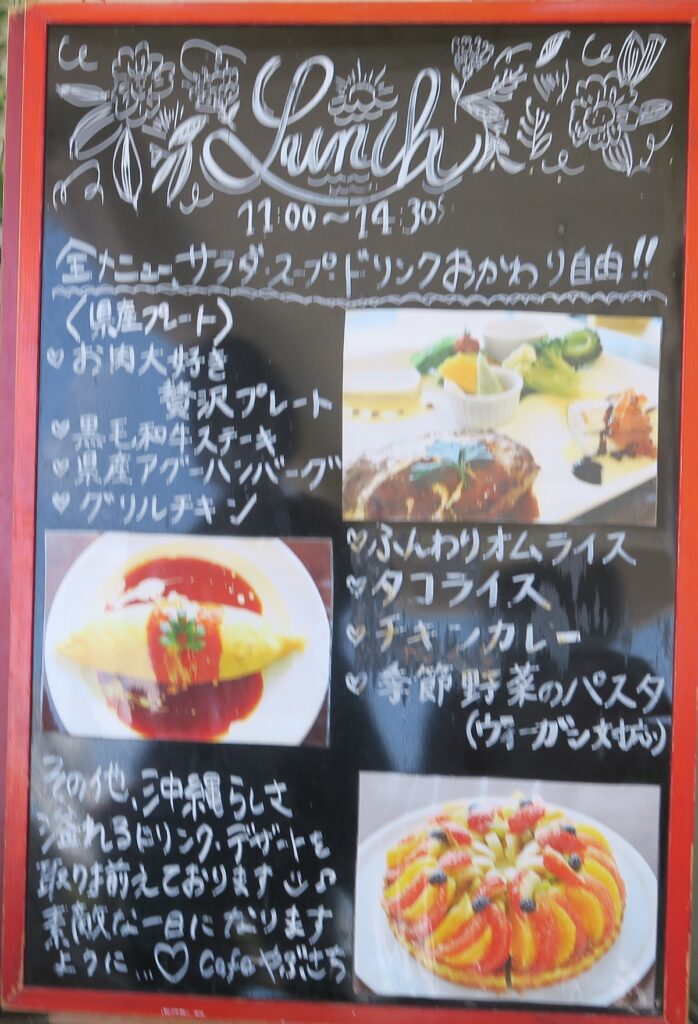 Lunch
11:00〜14:30
全メニュー、サラダ・スープ・ドリンクおかわり自由!!
〈県産プレート〉
♡お肉大好き
贅沢プレート
♡黒毛和牛ステーキ
♡県産アグーハンバーグ
♡グリルチキン
♡ふんわりオムライス
♡タコライス
♡チキンカレー
♡季節野菜のパスタ
(ヴィーガン対応)
その他、沖縄らしさ
溢れるドリンク・デザートを
取り揃えております
素敵な一日になります
ように...♡ Cafeやぶさち